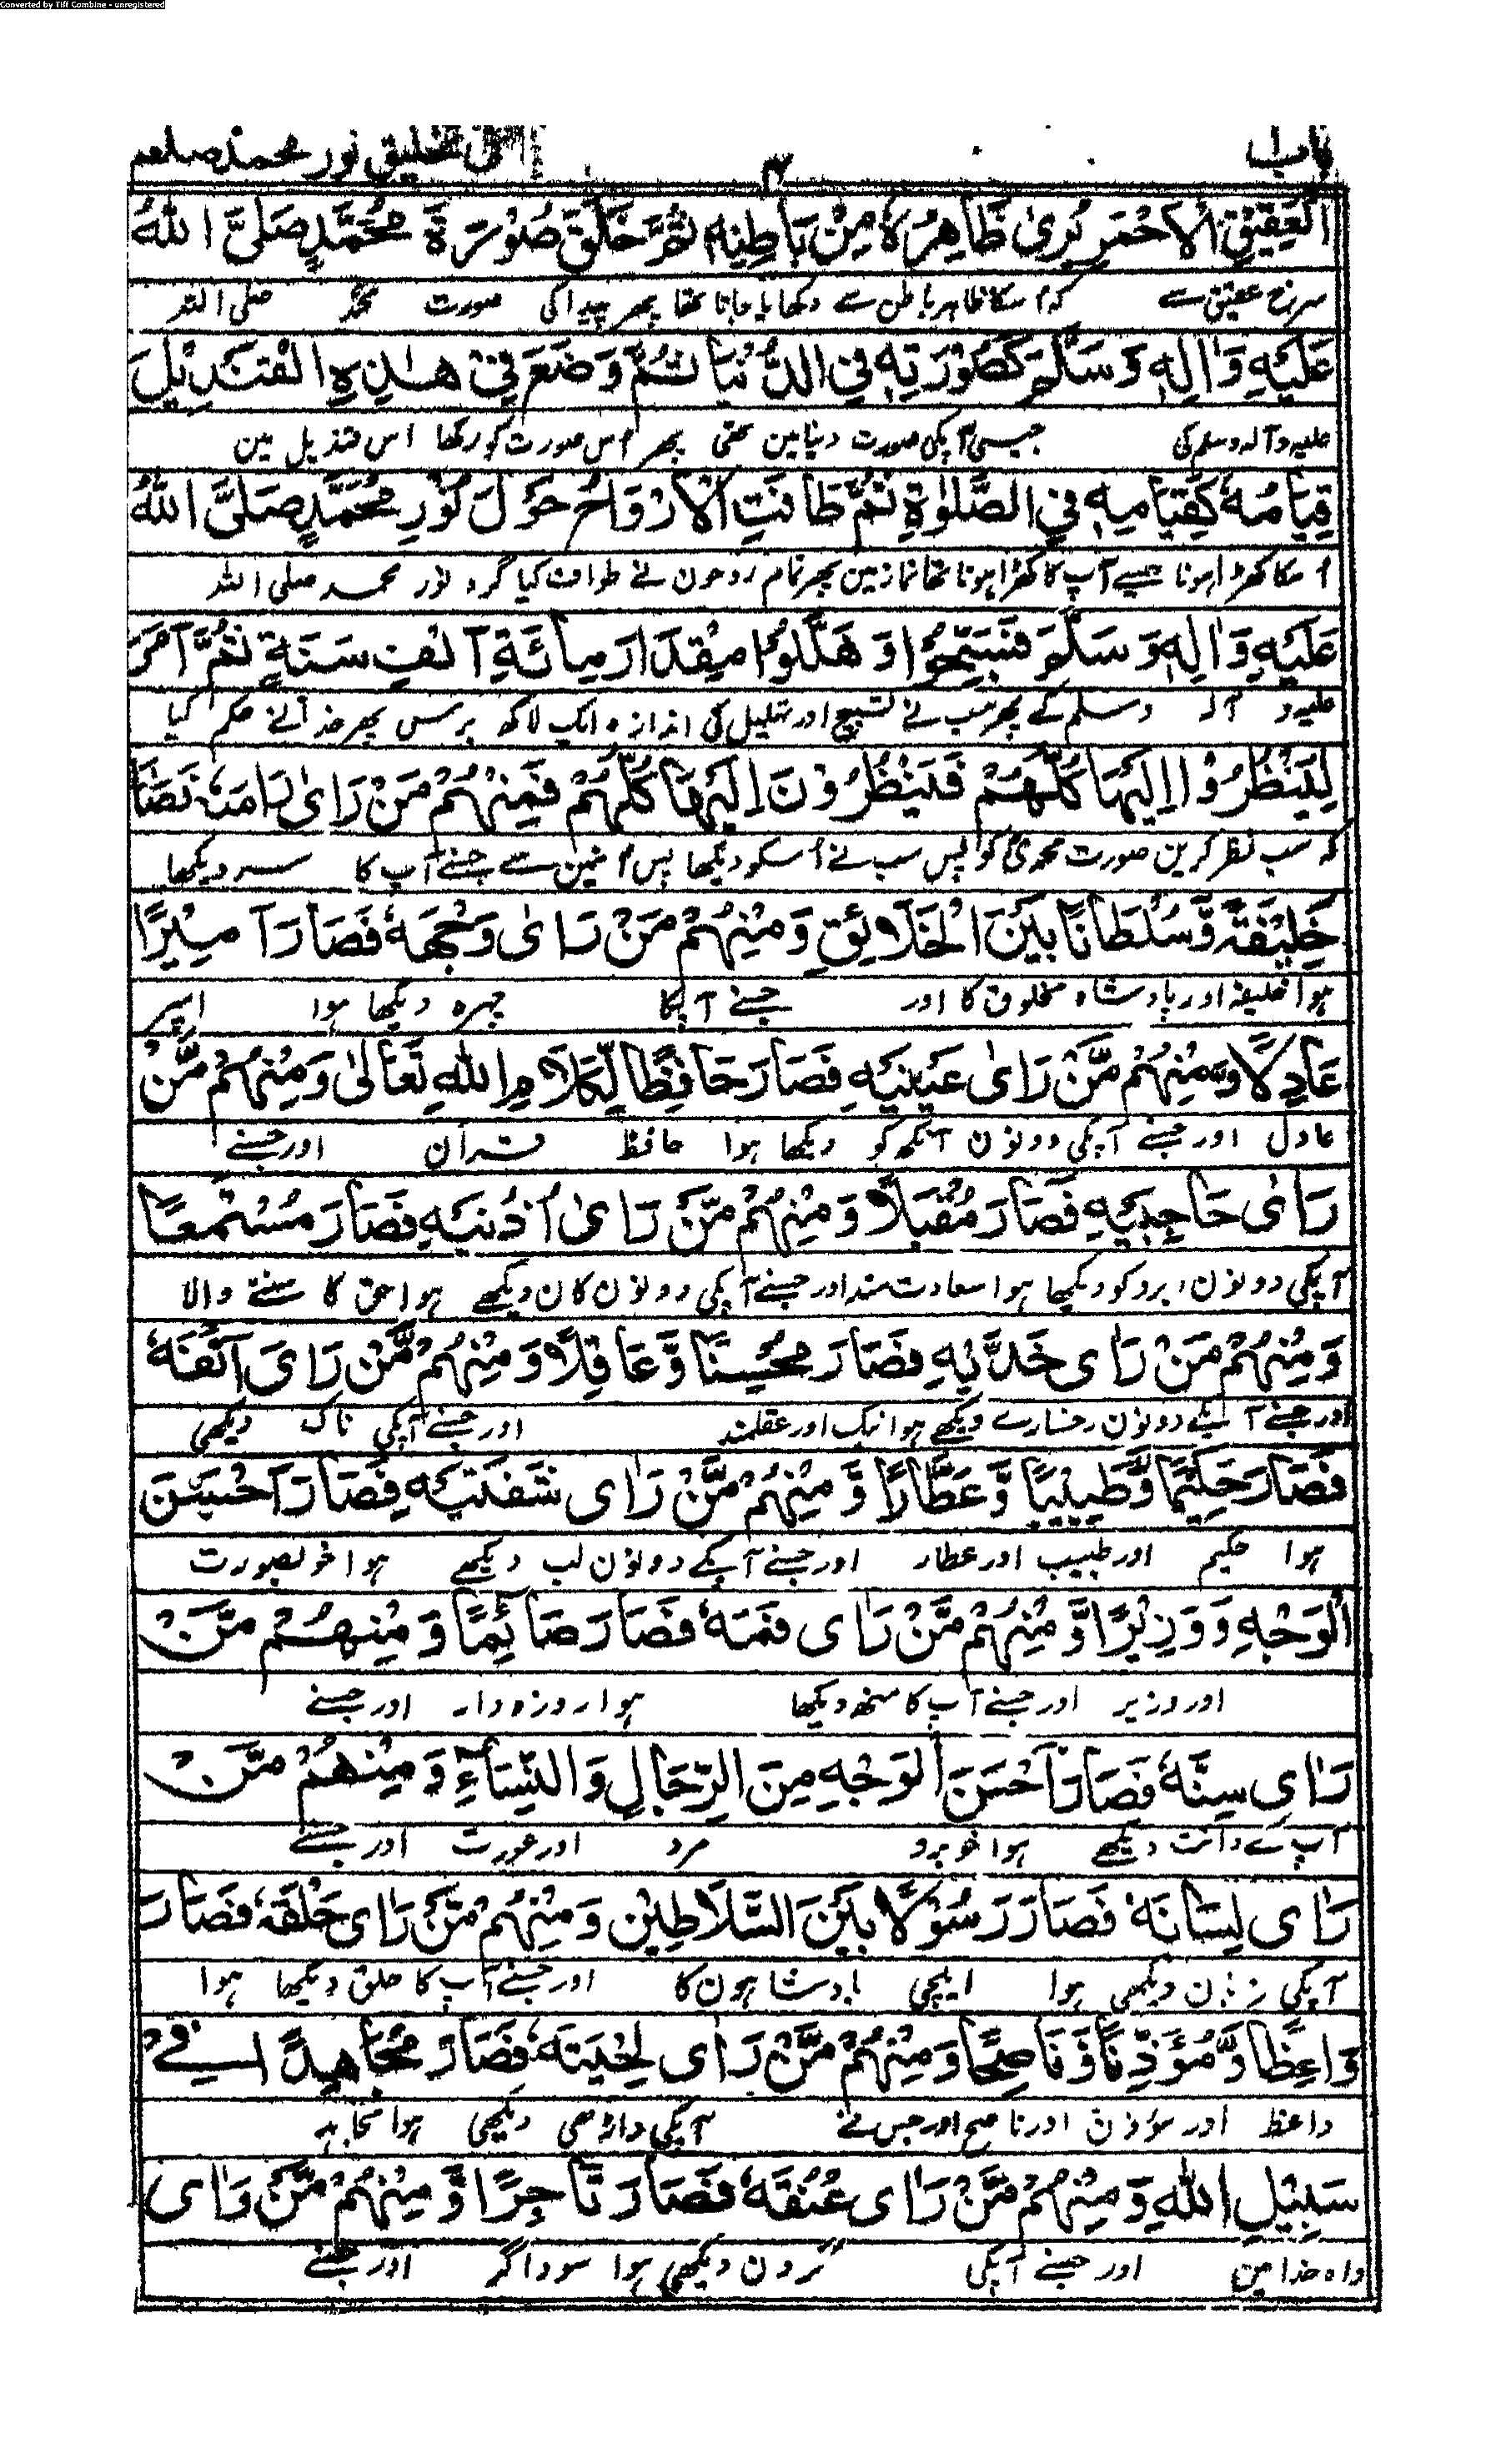 Converted by Tiff Combine - unregistered
باب ا
۴
فی تخلیق نور محمد صلعم
الْعَقِيْقِ الْاَحْمَرِ يُرٰى ظَاهِرُهٗ مِنْ بَاطِنِهٖ ثُمَّ خَلَقَ صُوْرَةَ مُحَمَّدٍ صَلَّى اللهُ
سرخ عقیق سے کہ اُسکا ظاہر باطن سے دکھایا جاتا تھا پھر پیدا کی صورت محمدؐ صلی اللہ
عَلَيْهِ وَاٰلِهٖ وَسَلَّمَ كَصُوْرَتِهٖ فِي الدُّنْيَا ثُمَّ وَضَعَ فِيْ هٰذِهِ الْقَنْدِيْلَ
علیہ وآلہ وسلم کی جیسی آپکی صورت دنیا مین تھی پھر اُس صورت کو رکھا اس قندیل مین
قِيَامُهٗ كَقِيَامِهٖ فِي الصَّلٰوةِ ثُمَّ طَافَتِ الْاَرْوَاحُ حَوْلَ نُوْرِ مُحَمَّدٍ صَلَّى اللهُ
اُسکا کھڑا ہونا جیسے آپ کا کھڑا ہونا تھا نماز مین پھر تمام روحون نے طواف کیا گرد نور محمد صلی اللہ
عَلَيْهِ وَاٰلِهٖ وَسَلَّمَ فَسَبَّحُوْا وَهَلَّلُوْا مِقْدَارَ مِائَةِ اَلْفِ سَنَةٍ ثُمَّ اَمَرَ
علیہ و آلہ وسلم کے پھر سب نے تسبیح اور تہلیل کی اندازہ ایک لاکھ برس پھر خدا نے حکم کیا
لِيَنْظُرُوْا اِلَيْهَا كُلُّهُمْ فَيَنْظُرُوْنَ اِلَيْهَا كُلُّهُمْ فَمِنْهُمْ مَنْ رَاٰى رَاْسَهٗ فَصَارَ
کہ سب نظر کرین صورت محمدی کو پس سب نے اُسکو دیکھا پس اُنمین سے جسنے آپ کا سر دیکھا
خَلِيْفَةً وَّسُلْطَانًا بَيْنَ الْخَلَائِقِ وَمِنْهُمْ مَنْ رَاٰى وَجْهَهٗ فَصَارَ اَمِيْرًا
ہوا خلیفہ اور بادشاہ مخلوق کا اور جسنے آپکا چہرہ دیکھا ہوا امیر
عَادِلًا وَّمِنْهُمْ مَّنْ رَاٰى عَيْنَيْهِ فَصَارَ حَافِظًا لِّكَلَامِ اللهِ تَعَالٰى وَمِنْهُمْ مَّنْ
عادل اور جسنے آپکی دونون آنکھ کو دیکھا ہوا حافظ قرآن اور جسنے
رَاٰى حَاجِبَيْهِ فَصَارَ مُقْبِلًا وَمِنْهُمْ مَّنْ رَاٰى اُذُنَيْهِ فَصَارَ مُسْتَمِعًا
آپکی دونون ابرو کو دیکھا ہوا سعادت مند اور جسنے آپکی دونون کان دیکھے ہوا حق کا سننے والا
وَمِنْهُمْ مَنْ رَاٰى خَدَّيْهِ فَصَارَ مُحْسِنًا وَّعَاقِلًا وَمِنْهُمْ مَّنْ رَاٰى اَنْفَهٗ
اور جسنے آپکے دونون رخسارے دیکھے ہوا نیک اور عقلمند اور جسنے آپکی ناک دیکھی
فَصَارَ حَكِيْمًا وَّطَبِيْبًا وَّعَطَّارًا وَّمِنْهُمْ مَّنْ رَاٰى شَفَتَيْهِ فَصَارَ اَحْسَنَ
ہوا حکیم اور طبیب اور عطار اور جسنے آپکے دونون لب دیکھے ہوا خوبصورت
الْوَجْهِ وَوَزِيْرًا وَّمِنْهُمْ مَّنْ رَاٰى فَمَهٗ فَصَارَ صَائِمًا وَمِنْهُمْ مَّنْ
اور وزیر اور جسنے آپ کا منھ دیکھا ہوا روزہ دار اور جسنے
رَاٰى سِنَّهٗ فَصَارَ اَحْسَنَ الْوَجْهِ مِنَ الرِّجَالِ وَالنِّسَاءِ وَمِنْهُمْ مَّنْ
آپ کے دانت دیکھے ہوا خوبرو مرد اور عورت اور جسنے
رَاٰى لِسَانَهٗ فَصَارَ رَسُوْلًا بَيْنَ السَّلَاطِيْنِ وَمِنْهُمْ مَّنْ رَاٰى حَلْقَهٗ فَصَارَ
آپکی زبان دیکھی ہوا ایلچی بادشاہون کا اور جسنے آپ کا حلق دیکھا ہوا
وَاعِظًا وَّمُؤَذِّنًا وَّنَاصِحًا وَمِنْهُمْ مَّنْ رَاٰى لِحْيَتَهٗ فَصَارَ مُجَاهِدًا فِيْ
واعظ اور مؤذن اور ناصح اور جس نے آپکی داڑھی دیکھی ہوا مجاہد
سَبِيْلِ اللهِ وَمِنْهُمْ مَّنْ رَاٰى عُنُقَهٗ فَصَارَ تَاجِرًا وَّمِنْهُمْ مَّنْ رَاٰى
راہ خدا مین اور جسنے آپکی گردن دیکھی ہوا سوداگر اور جسنے